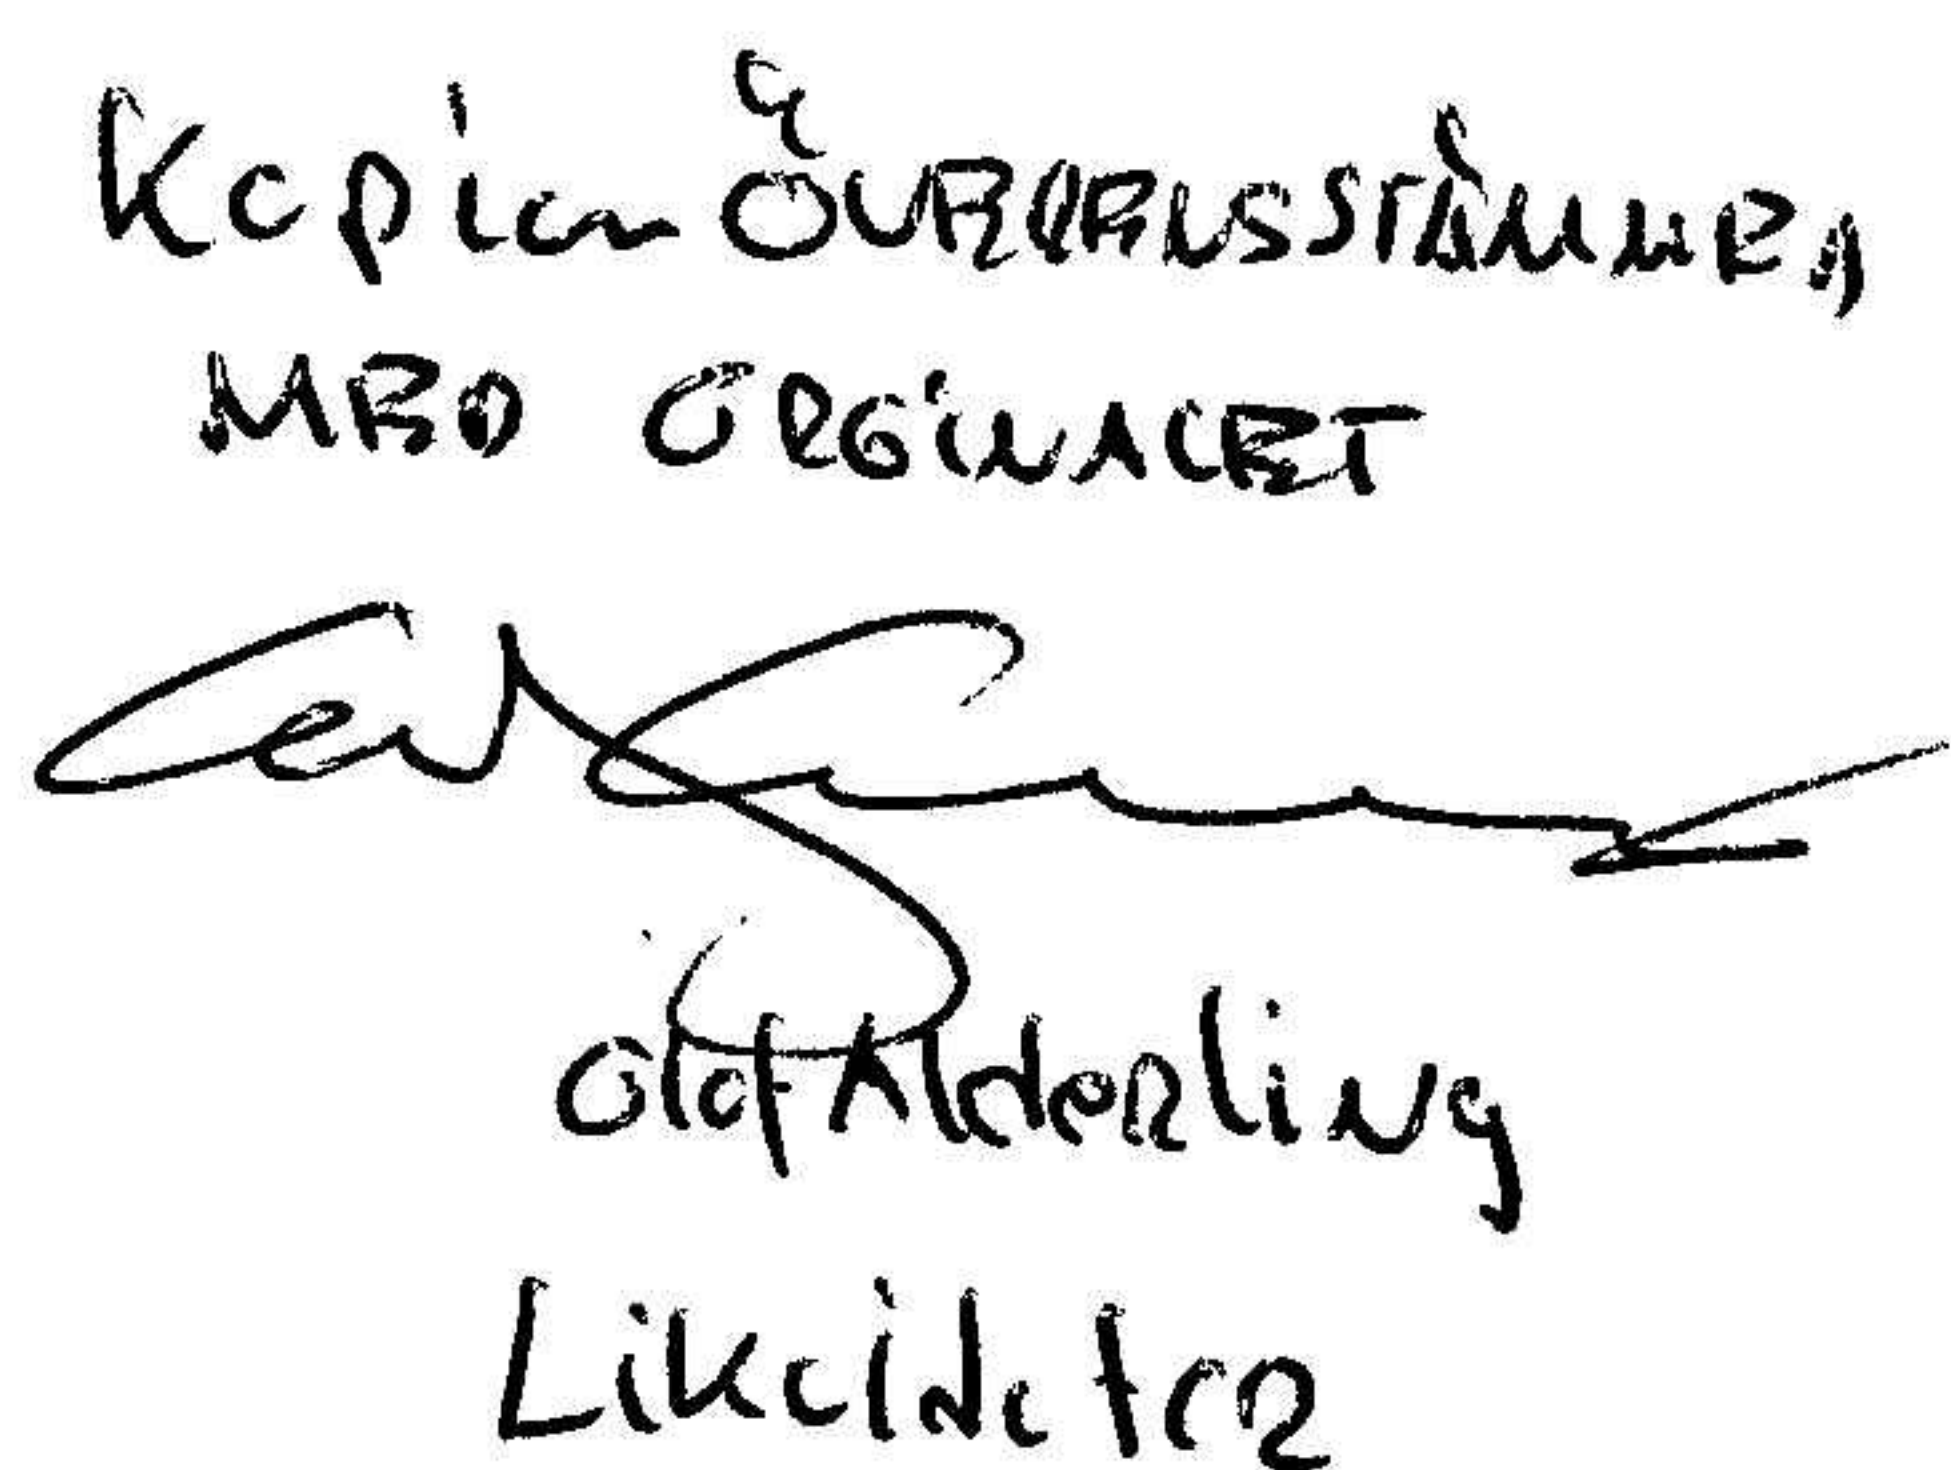 Kopian ÖVERENSSTÄMMER,
MED ORGINALET
Olof Alderling
Likvidator